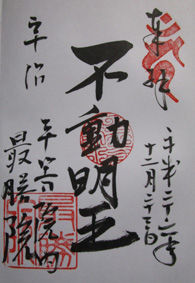 奉拝
平成二十二年
十二月二十三日
不動明王
宇治
平等院内
最勝院